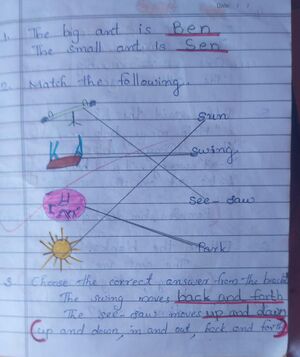 1. The big ant is Ben
The small ant is Sen
2. Match the following.
Sun
Swing
See-Saw
Park
3. Choose the correct answer from the
The swing moves back and forth
The see-saw moves up and down
(up and down, in and out, back and forth)